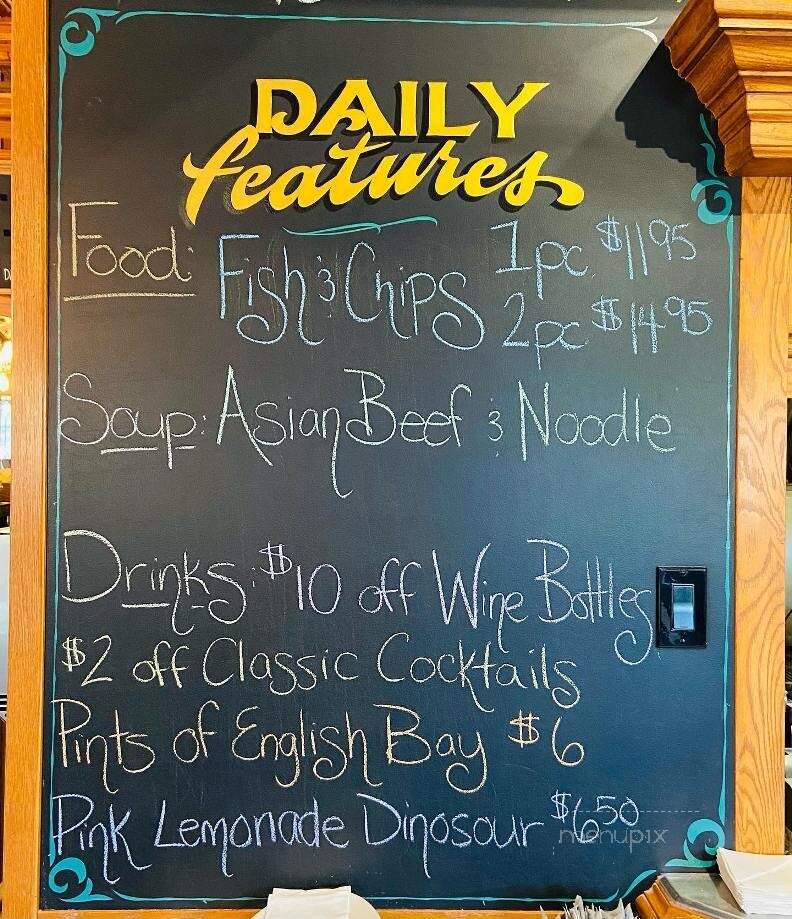 DAILY
features
Food: Fish & Chips 1pc $11.95
2pc $14.95
Soup: Asian Beef & Noodle
Drinks: $10 off Wine Bottles
$2 off Classic Cocktails
Pints of English Bay $6
Pink Lemonade Dinosour $6.50
menupix